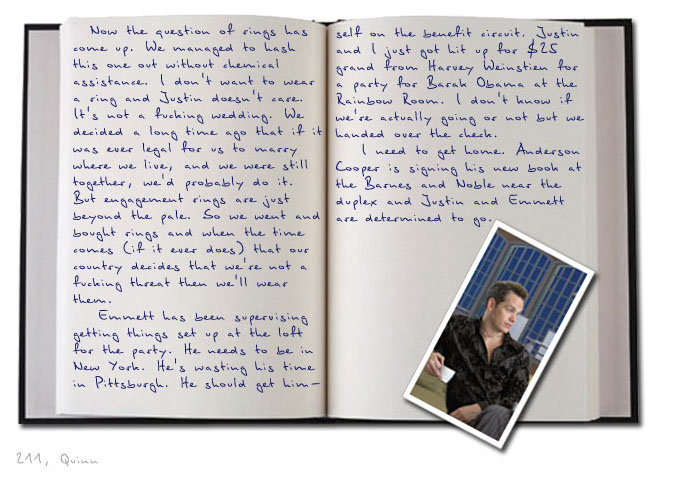 Now the question of rings has
come up. We managed to hash
this one out without chemical
assistance. I don't want to wear
a ring and Justin doesn't care.
It's not a fucking wedding. We
decided a long time ago that if it
was ever legal for us to marry
where we live, and we were still
together, we'd probably do it.
But engagement rings are just
beyond the pale. So we went and
bought rings and when the time
comes (if it ever does) that our
country decides that we're not a
fucking threat then we'll wear
them.
Emmett has been supervising
getting things set up at the loft
for the party. He needs to be in
New York. He's wasting his time
in Pittsburgh. He should get him-
self on the benefit circuit. Justin
and I just got hit up for $25
grand from Harvey Weinstien for
a party for Barak Obama at the
Rainbow Room. I don't know if
we're actually going or not but we
handed over the check.
I need to get home. Anderson
Cooper is signing his new book at
the Barnes and Noble near the
duplex and Justin and Emmett
are determined to go.
211, Quinn